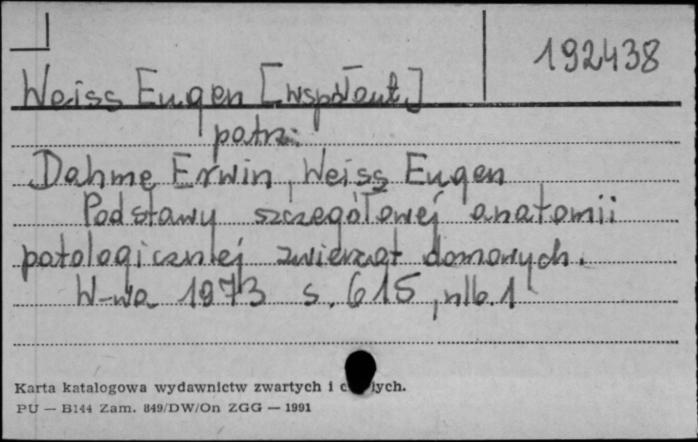 192438
Weiss Eugen [współaut.]
patrz:
Dahme Erwin, Weiss Eugen
Podstawy szczegółowej anatomii
patologicznej zwierząt domowych.
W-wa 1973 s. 615, nlb. 1
Karta katalogowa wydawnictw zwartych i ych.
PU — B144 Zam. 849/DW/On ZGG — 1991